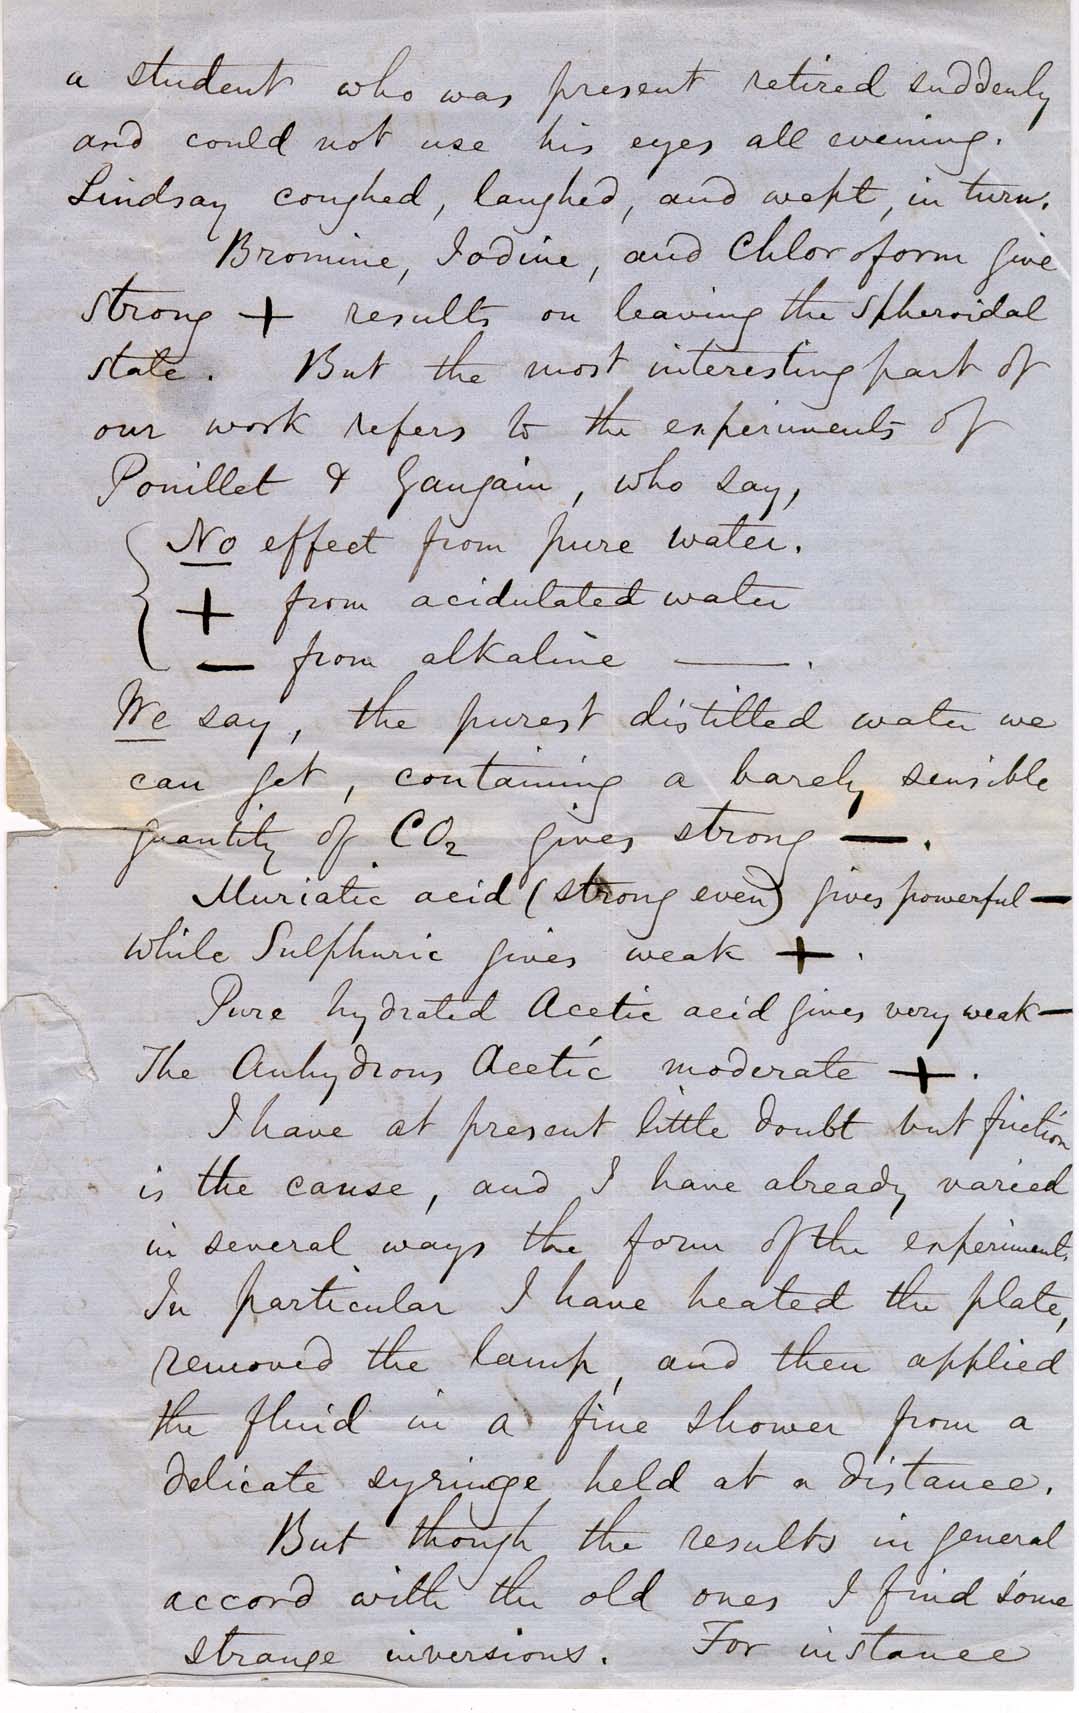 a student who was present retired suddenly
and could not use his eyes all evening.
Lindsay coughed, laughed, and wept, in turn.
Bromine, Iodine, and Chloroform give
strong + results on leaving the spheroidal
state. But the most interesting part of
our work refers to the experiments of
Pouillet & Gaugain, who say,
No effect from pure water.
+ from acidulated water
— from alkaline ———.
We say, the purest distilled water we
can get, containing a barely sensible
quantity of CO₂ gives strong —.
Muriatic acid (strong even) gives powerful —
while Sulphuric gives weak +.
Pure hydrated Acetic acid gives very weak —
The Anhydrous Acetic moderate +.
I have at present little doubt but friction
is the cause, and I have already varied
in several ways the form of the experiments.
In particular I have heated the plate,
removed the lamp, and then applied
the fluid in a fine shower from a
delicate syringe held at a distance.
But though the results in general
accord with the old ones I find some
strange inversions. For instance